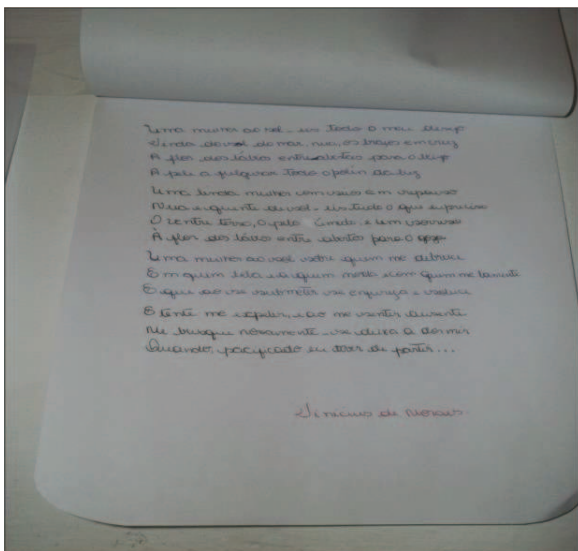 Uma mulher ao sol - eis todo o meu desejo
Vinda do sol do mar, nua, os braços em cruz
A flor dos lábios entreabertos para o beijo
A pele a fulgurar todo o pólen da luz
Uma linda mulher com seios em repouso
Nua e quente de sol - eis tudo o que eu preciso
O ventre terso, o pelo úmido e um sorriso
À flor dos lábios entre abertos para o gozo
Uma mulher ao sol sobre quem me debruce
Em quem beba e a quem morda e com quem me lamente
E que ao se submeter se enfureça e soluce
E tente me expelir, e ao me sentir ausente
Me busque novamente - se deixa a dormir
Quando, pacificado eu tiver de partir...
Vinicius de Moraes